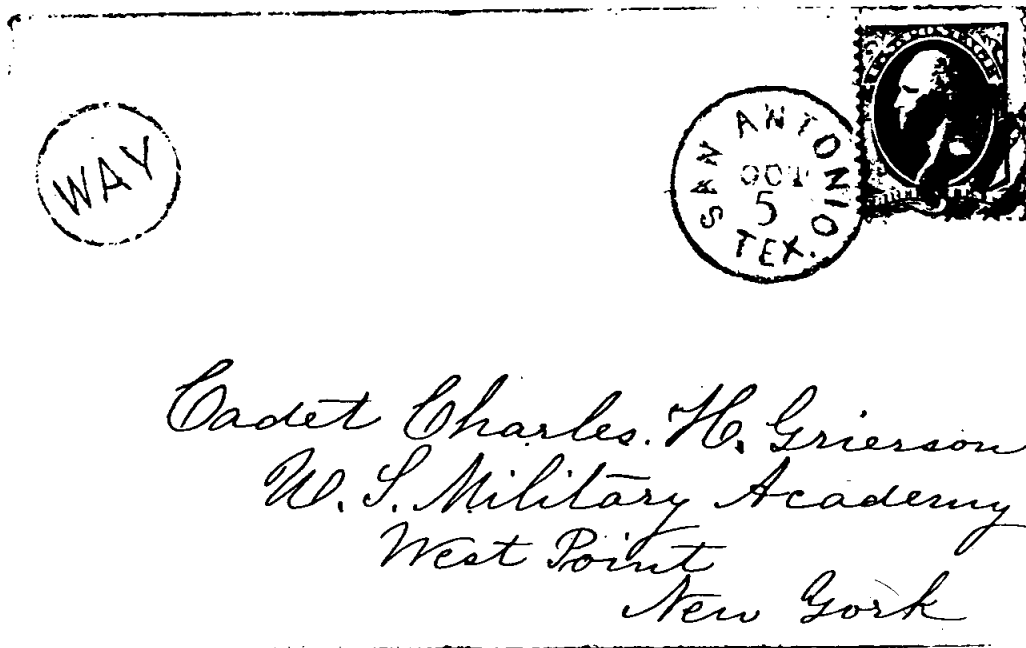 WAY
SAN ANTONIO
OCT
5
TEX.
Cadet Charles. H. Grierson
U. S. Military Academy
West Point
New York